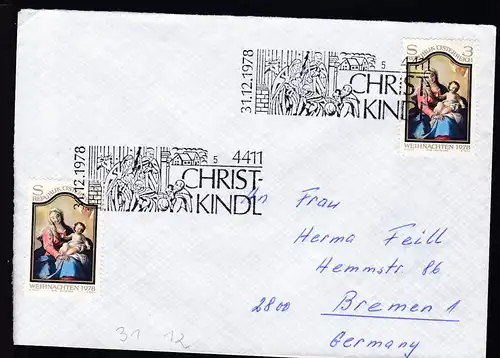 31.12.1978
5 4411
CHRIST-
KINDL
S 3
REPUBLIK ÖSTERREICH
WEIHNACHTEN 1978
31.12.1978
5 4411
CHRIST-
KINDL
S
REPUBLIK ÖSTERREICH
WEIHNACHTEN 1978
An Frau
Herma Feill
Hemmstr. 86
2800 Bremen 1
Germany
31 12